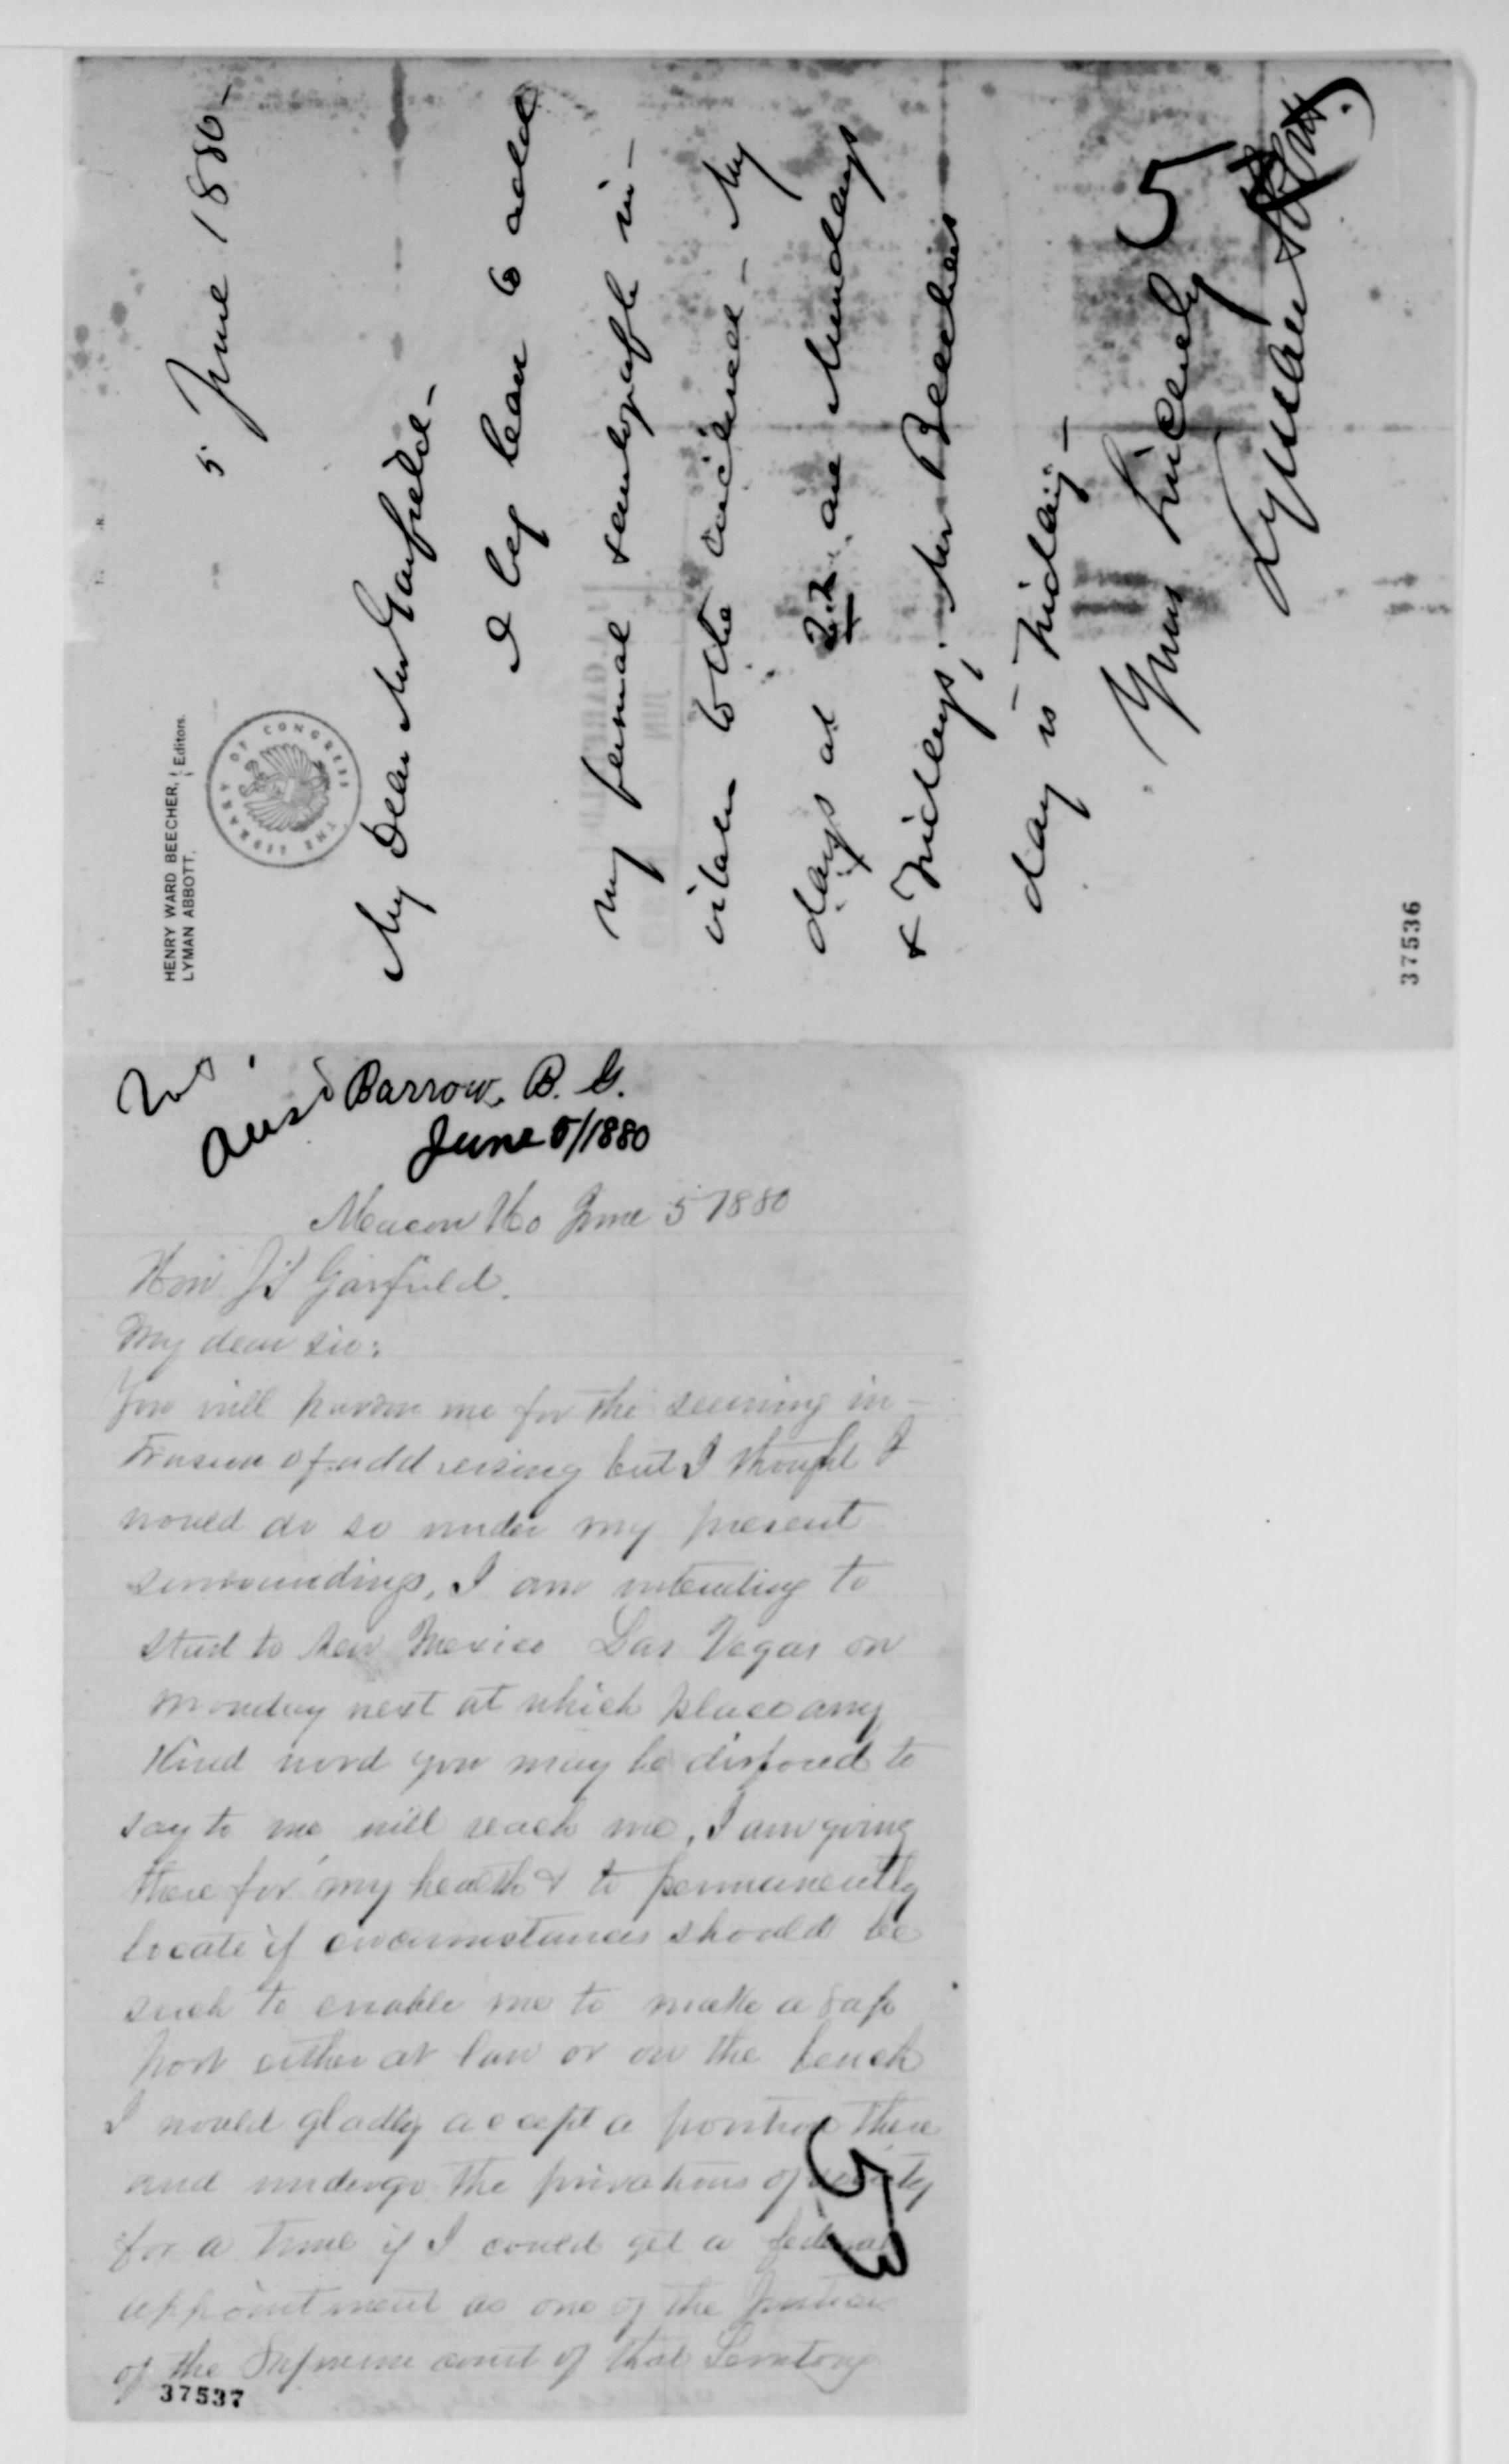 HENRY WARD BEECHER, } Editors.
LYMAN ABBOTT,
THE LIBRARY OF CONGRESS
5 June 1880 -
My Dear Mr Garfield -
I beg leave to add
my personal to the in-
vitation to the enclosed - My
days at 27 are Mondays
& Fridays; Mr Beechers
day is Friday -
Yours Sincerely
Lyman Abbott.
5
37536
Ansd Barrow, B. G.
June 5/1880
Macon Mo June 5 1880
Hon J A Garfield.
My dear sir:
You will pardon me for the seeming in-
trusion of addressing but I thought I
would do so under my present
surroundings. I am intending to
start to New Mexico Las Vegas on
monday next at which place any
kind word you may be disposed to
say to me will reach me. I am going
there for my health & to permanently
locate if circumstances should be
such to enable me to make a safe
port either at law or on the bench
I would gladly accept a position there
and undergo the privations of society
for a time if I could get a federal
appointment as one of the Justices
of the Supreme court of that Territory
53
37537